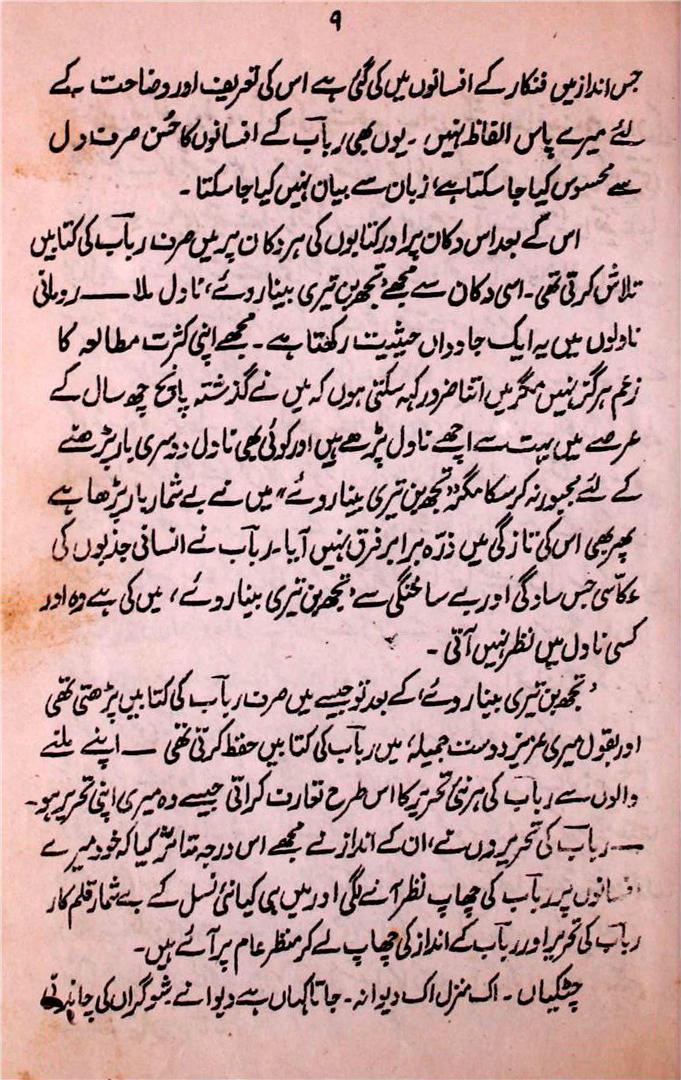 ۹
جس انداز میں فنکار کے افسانوں میں کی گئی ہے اس کی تعریف اور وضاحت کے
لئے میرے پاس الفاظ نہیں ۔ یوں بھی ربابؔ کے افسانوں کا حُسن صرف دل
سے محسوس کیا جا سکتا ہے، زبان سے بیان نہیں کیا جا سکتا ۔
اس کے بعد اس دکان پر اور کتابوں کی ہر دکان پر میں صرف ربابؔ کی کتابیں
تلاش کرتی تھی ۔ اسی دکان سے مجھے ’تجھ بن تیری بینا روئے‘، ناول ملا —— رومانی
ناولوں میں یہ ایک جاوداں حیثیت رکھتا ہے ۔ مجھے اپنی کثرت مطالعہ کا
زعم ہرگز نہیں مگر میں اتنا ضرور کہہ سکتی ہوں کہ میں نے گذشتہ پانچ چھ سال کے
عرصے میں بہت سے اچھے ناول پڑھے ہیں اور کوئی بھی ناول دوسری بار پڑھنے
کے لئے مجبور نہ کر سکا مگر ”تجھ بن تیری بینا روئے“ میں نے بے شمار بار پڑھا ہے
پھر بھی اس کی تازگی میں ذرّہ برابر فرق نہیں آیا ۔ ربابؔ نے انسانی جذبوں کی
عکاّسی جس سادگی اور بے ساختگی سے ’تجھ بن تیری بینا روئے‘، میں کی ہے وہ اور
کسی ناول میں نظر نہیں آتی ۔
’تجھ بن تیری بینا روئے‘ کے بعد تو جیسے میں صرف ربابؔ کی کتابیں پڑھتی تھی
اور بقول میری عزیز دوست جمیلہ، میں ربابؔ کی کتابیں حفظ کرتی تھی — اپنے ملنے
والوں سے ربابؔ کی ہر نئی تحریر کا اس طرح تعارف کراتی جیسے وہ میری اپنی تحریر ہو ۔
— ربابؔ کی تحریروں نے، ان کے انداز نے مجھے اس درجہ متاثر کیا کہ خود میرے
افسانوں پر ربابؔ کی چھاپ نظر آنے لگی اور میں ہی کیا نئی نسل کے بے شمار قلم کار
ربابؔ کی تحریر اور ربابؔ کے انداز کی چھاپ لے کر منظر عام پر آئے ہیں ۔
چٹکیاں ۔ اک منزل اک دیوانہ ۔ جاتا کہاں ہے دیوانے ۔ شوگراں کی چاندنی